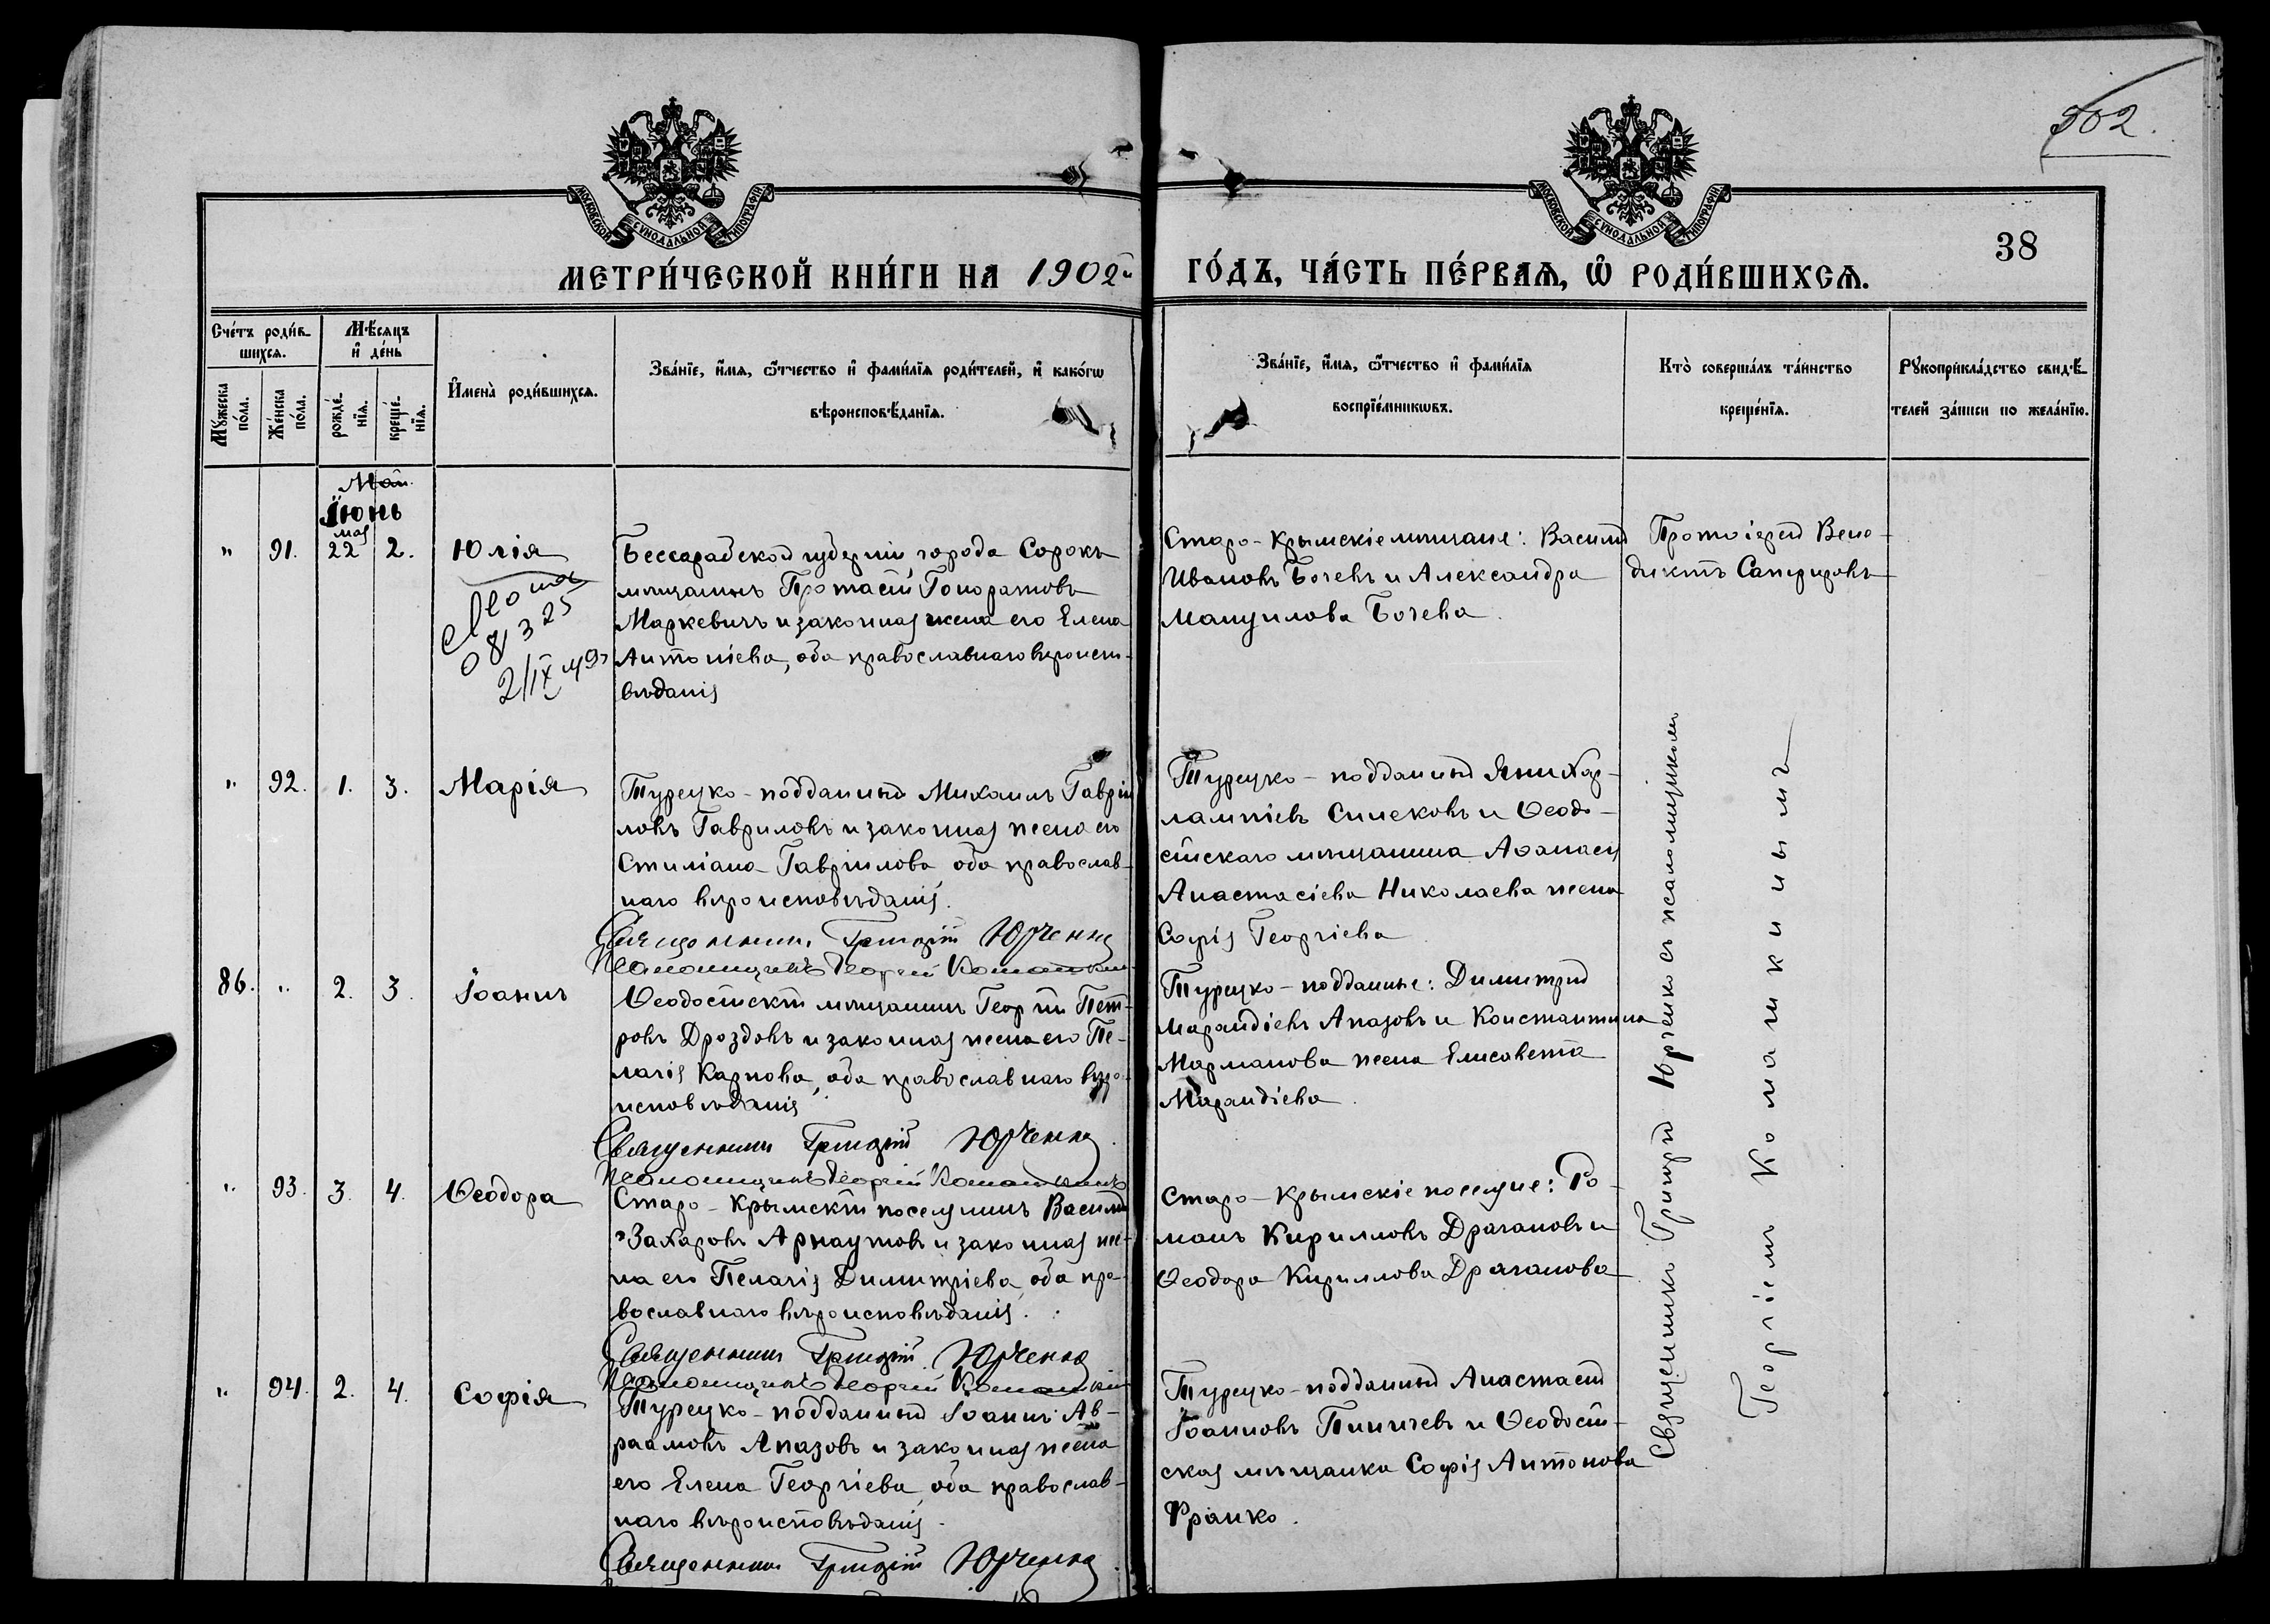 502.
38
МОСКОВСКОЙ СУНОДАЛЬНОЙ ТИПОГРАФІИ
МОСКОВСКОЙ СУНОДАЛЬНОЙ ТИПОГРАФІИ
МЕТРИ́ЧЕСКОЙ КНИ́ГИ НА 1902й ГО́ДЪ, ЧА́СТЬ ПЕ́РВАѦ, Ѡ҆ РОДИ́ВШИХСѦ.
Сче́тъ роди́в-
шихся.
Мѣ́сяцъ
и҆ де́нь
Мꙋ́жеска
по́ла.
Же́нска
по́ла.
рожде́-
нїѧ.
креще́-
нїѧ.
И҆мена̀ роди́вшихсѧ.
Зва́нїе, и҆́мѧ, ѻ҆́тчество и҆ фами́лїѧ роди́телей, и҆ како́гѡ
вѣроисповѣ́данїѧ.
Зва́нїе, и҆́мѧ, ѻ҆́тчество и҆ фами́лїѧ
воспрїе́мникѡвъ.
Кто̀ соверша́лъ та́инство
креще́нїѧ.
Рꙋкоприкла́дство свидѣ́-
телей за́писи по жела́нїю.
Май
Іюнь
мая
" 91. 22 2. Юлія
2/IX
Бессарабской губерніи, города Сорокъ
мѣщанинъ Протасій Гоноратовъ
Маркевичъ и законная жена его Елена
Антоніева, оба православнаго вѣроиспо-
вѣданія
Старо-Крымскіе мѣщане: Василій
Ивановъ Бочевъ и Александра
Мануилова Бочева.
Протоіерей Вене-
диктъ Сапфировъ
" 92. 1. 3. Марія
Турецко-подданный Михаилъ Гаврій
ловъ Гавриловъ и законная жена его
Стиліана Гавріилова, оба православ-
наго вѣроисповѣданія.
Священникъ Григорій Юрченко
Псаломщикъ Георгій
Турецко-подданный Яни Хар-
лампіевъ Синековъ и Ѳеодо-
сійскаго мѣщанина Аѳанасія
Анастасіева Николаева жена
Софія Георгіева
86. " 2. 3. Іоаннъ
Ѳеодосійскій мѣщанинъ Георгій Пет-
ровъ Дроздовъ и законная жена его Пе-
лагія Карпова, оба православнаго вѣро-
исповѣданія
Священникъ Григорій Юрченко.
Псаломщикъ Георгій
Турецко-подданные: Димитрій
Марандіевъ Апазовъ и Константина
Марманова жена Елисавета
Марандіева.
" 93. 3. 4. Ѳеодора
Старо-Крымскій поселянинъ Василій
Захаровъ Арнаутовъ и законная же-
на его Пелагія Димитріева, оба пра-
вославнаго вѣроисповѣданія.
Священникъ Григорій Юрченко
Псаломщикъ Георгій
Старо-Крымскіе поселяне: Ро-
манъ Кирилловъ Драгановъ и
Ѳеодора Кириллова Драганова
" 94. 2. 4. Софія
Турецко-подданный Іоаннъ Ав-
раамовъ Апазовъ и законная жена
его Елена Георгіева, оба православ-
наго вѣроисповѣданія.
Священникъ Григорій Юрченко.
Турецко-подданный Анастасій
Іоанновъ Пиничевъ и Ѳеодосій-
ская мѣщанка Софія Антонова
Франко.
Священникъ Григорій Юрченко съ псаломщикомъ
Георгіемъ Команикинымъ